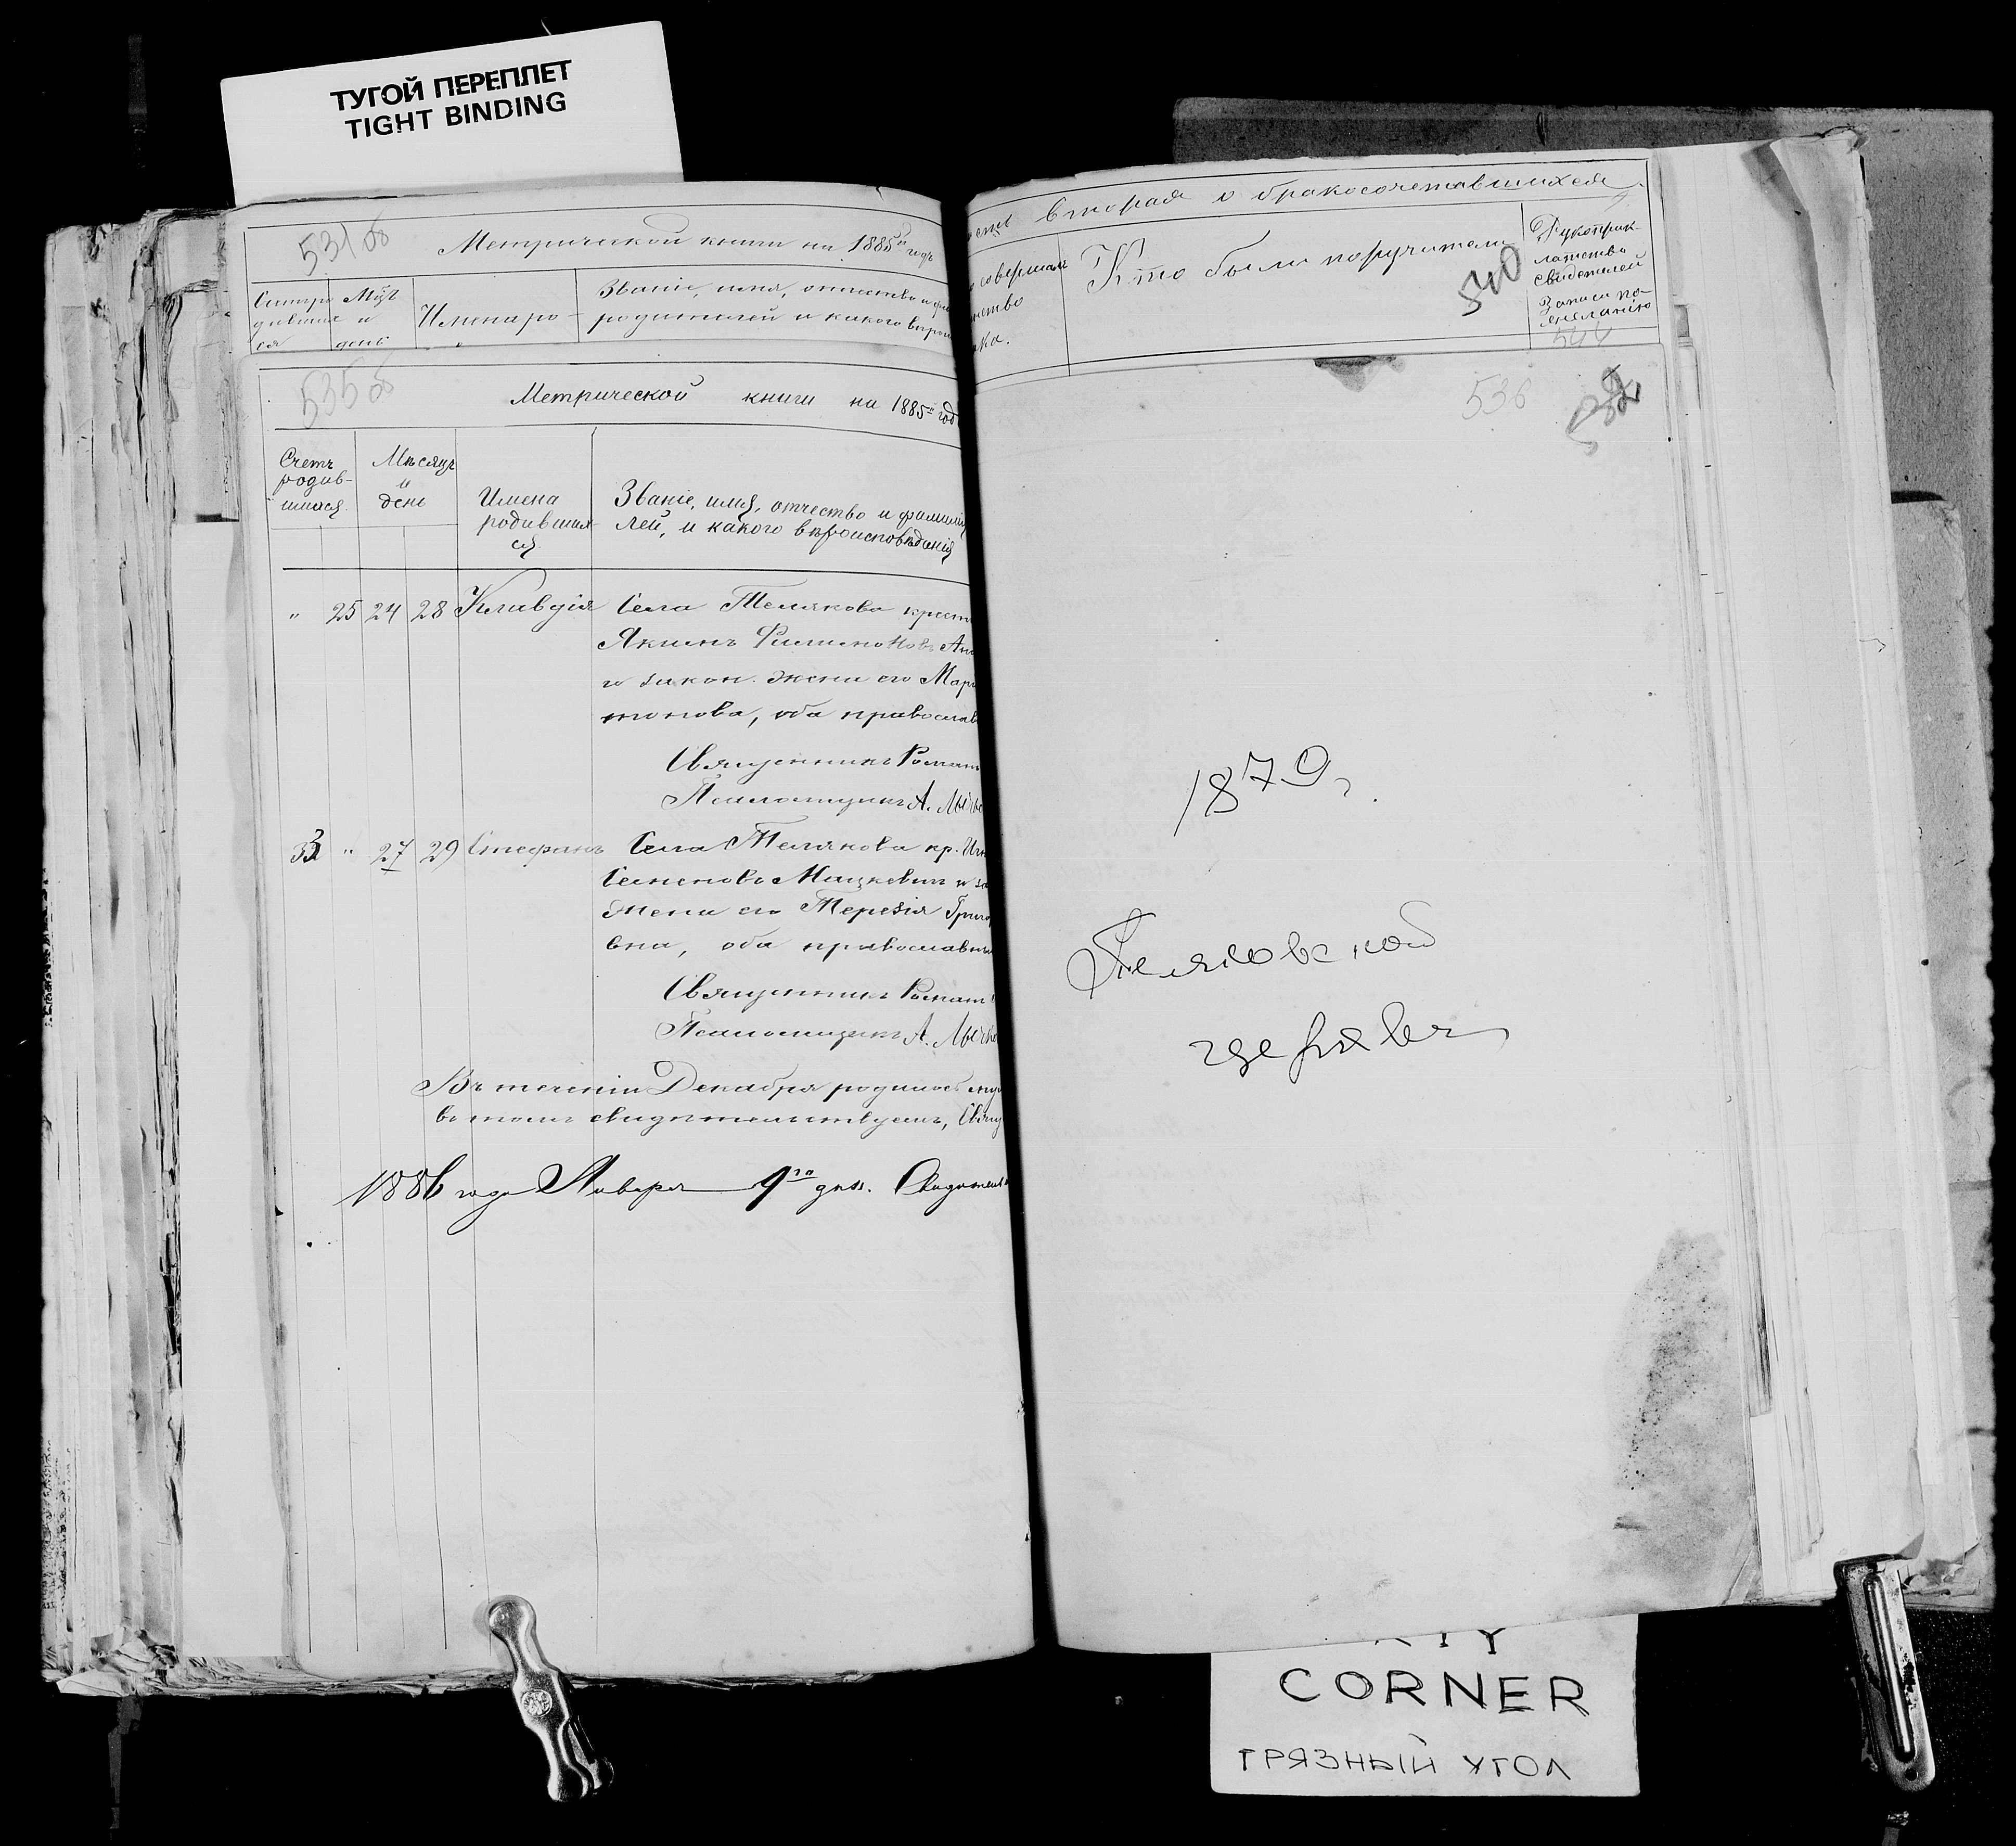 ТУГОЙ ПЕРЕПЛЕТ
TIGHT BINDING
531 об
Метрической книги на 1885й годъ
Мцъ
и
день
Имена ро-
Званіе, имя, отчество и
родителей и какого
535 об
Метрической книги на 1885й год
Счетъ
родив-
шихся
Мѣсяцъ
и
день
Имена
родивших
ся
Званіе, имя, отчество и фамилія
лей, и какого вѣроисповѣданія
" 25 24 28 Клавдія Села Телякова крест
Якимъ Филимоновъ
и закон. жена его Мар
това, оба православ
Священникъ Роман
Псаломщикъ А.
33 " 27 29 Стефанъ Села Телякова кр.
Семеновъ Мацкевичъ и за
жена его Терезія Григор
вна, оба православны
Священникъ Роман
Псаломщикъ А.
Въ теченіи Декабря родилось
въ томъ свидѣтельствуемъ, Свящ
1886 года Января 9го дня. Свидѣтел
вторая о бракосочетавшихся
совершал
ка.
Кто были поручители
540
Рукоприк-
латство
свидетелей
записи по
желанію
544
536
1879
Теляковской
церкви
CORNER
ГРЯЗНЫЙ УГОЛ